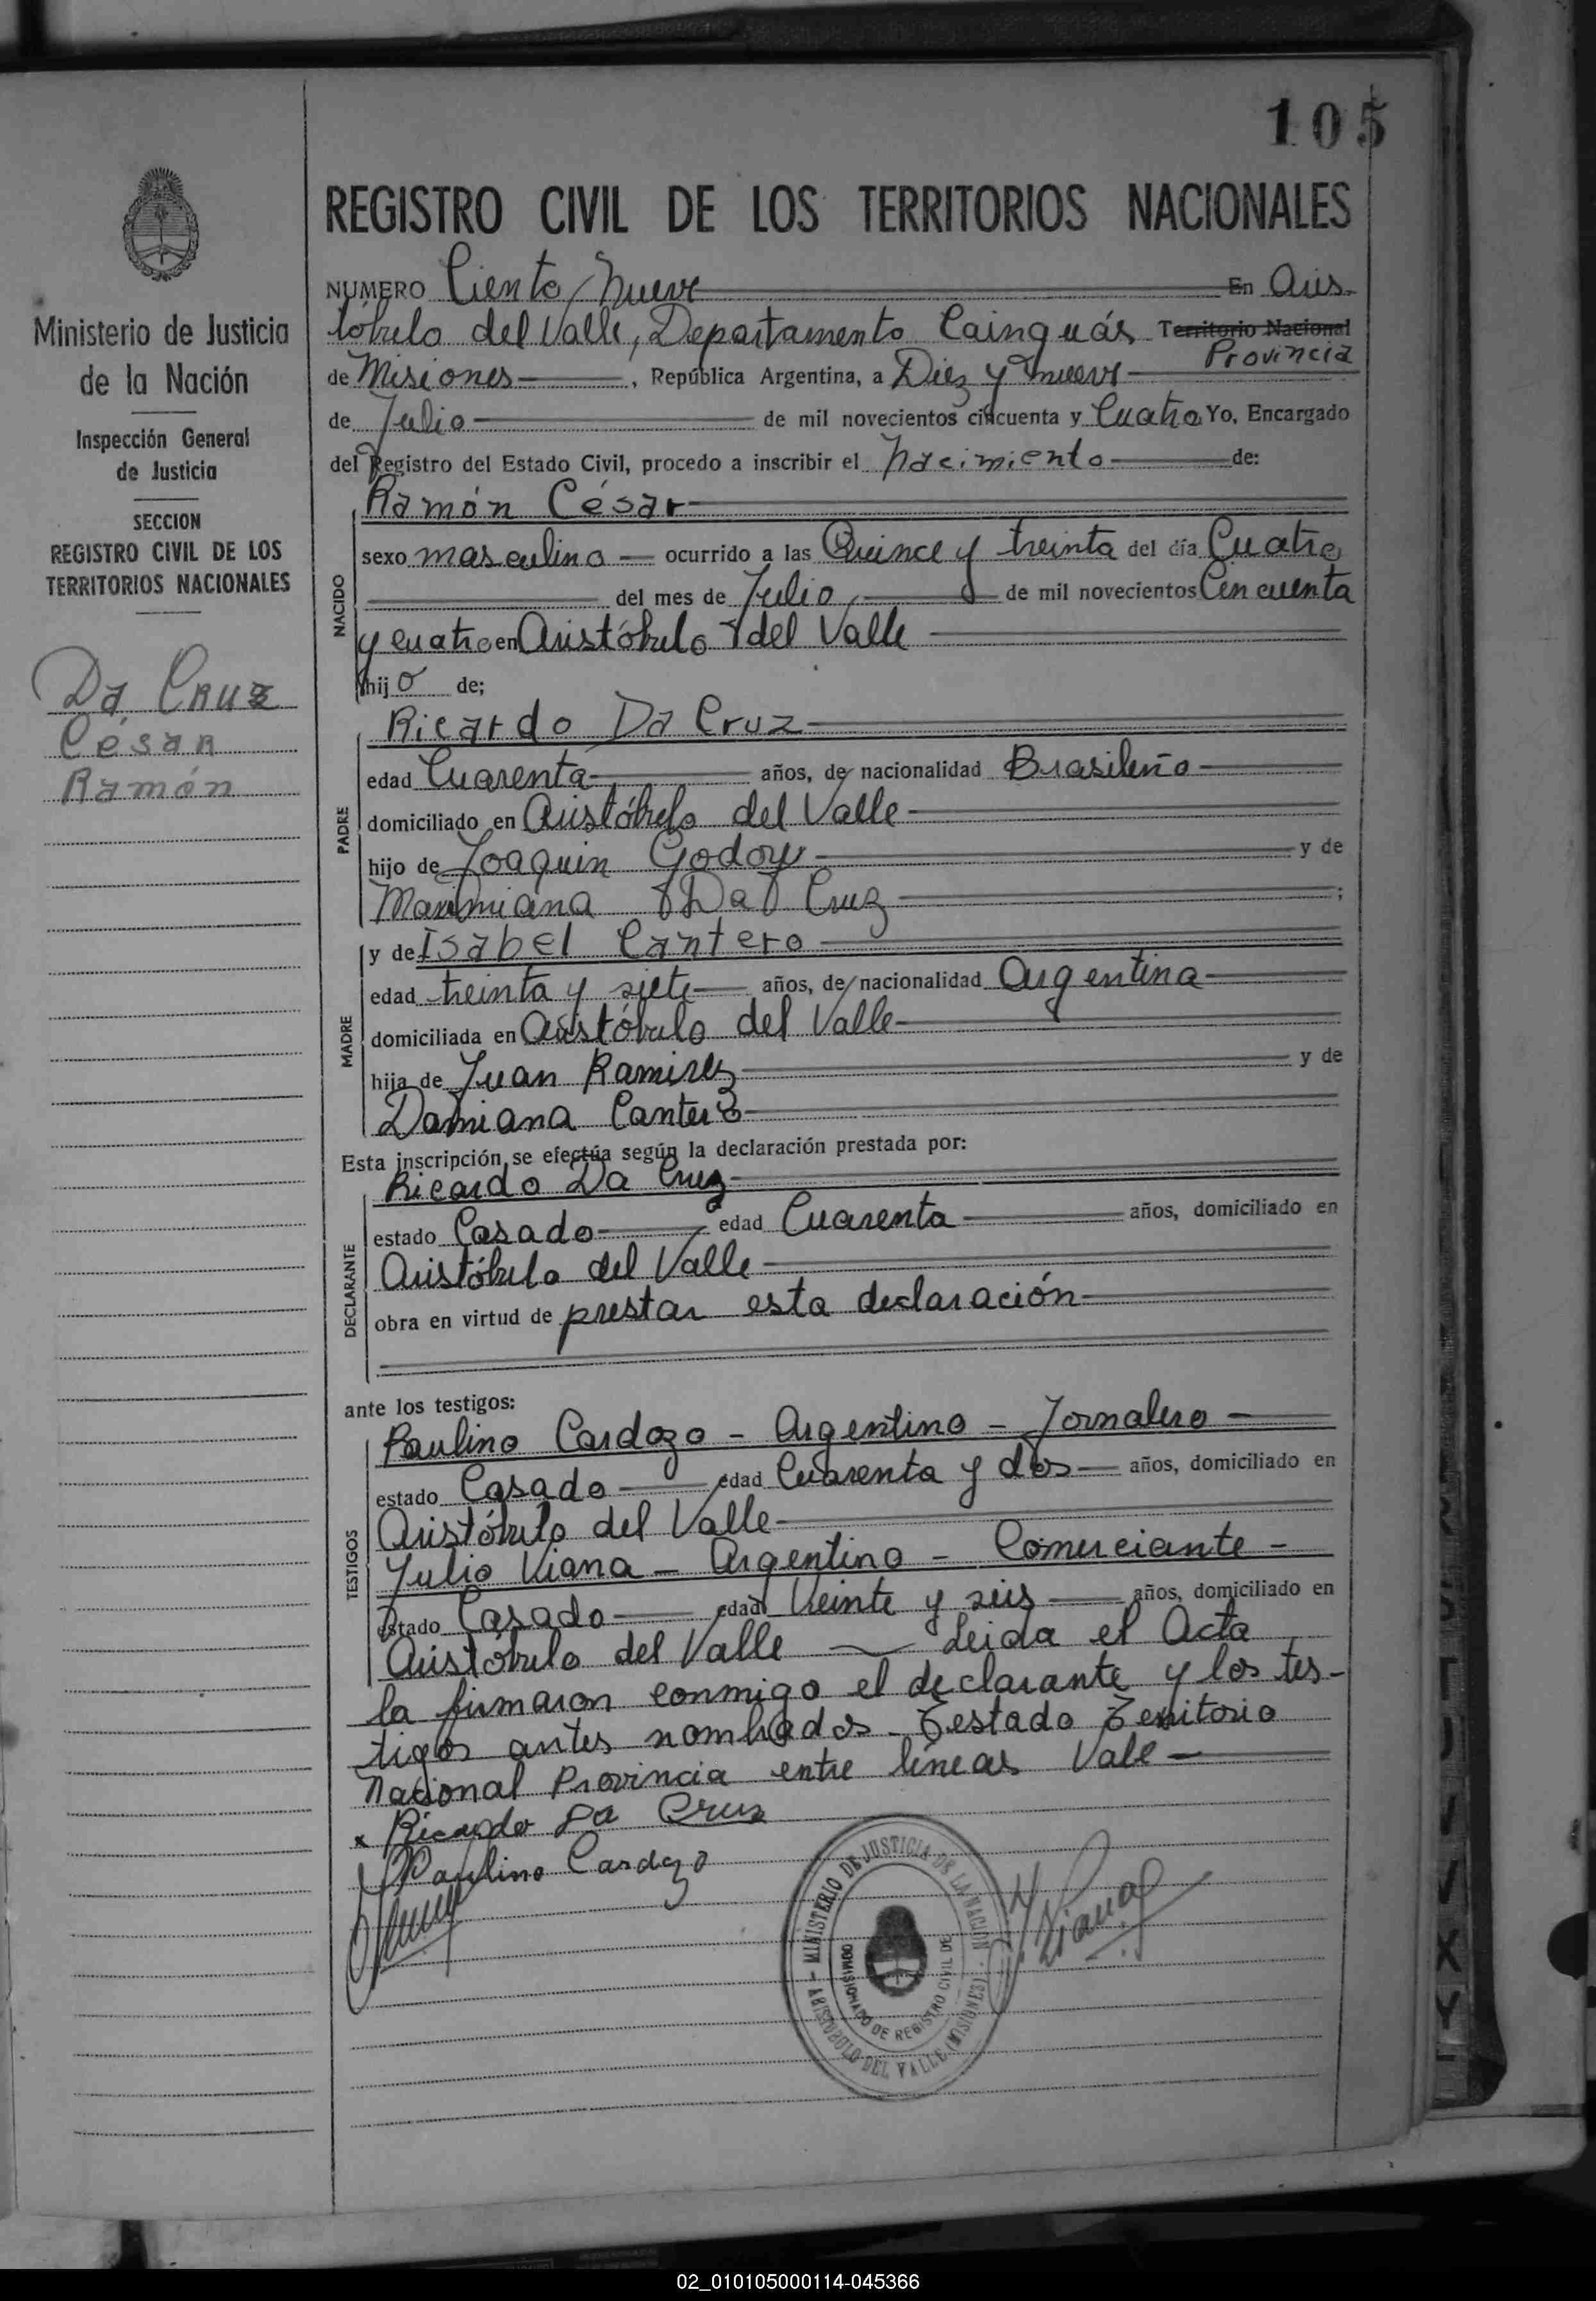 105
REGISTRO CIVIL DE LOS TERRITORIOS NACIONALES
NUMERO Ciento Nueve En Aris
tóbulo del Valle, Departamento Cainguás Territorio Nacional
Provincia
de Misiones, República Argentina, a Diez y nueve
de Julio de mil novecientos cincuenta y Cuatro Yo, Encargado
del Registro del Estado Civil, procedo a inscribir el Nacimiento de:
Ramón César
sexo masculino ocurrido a las Quince y treinta del día Cuatro
del mes de Julio de mil novecientos Cincuenta
y cuatro en Aristóbulo del Valle
NACIDO
hijo de;
Ricardo Da Cruz
edad Cuarenta años, de nacionalidad Brasileño
domiciliado en Aristóbulo del Valle
hijo de Joaquin Godoy y de
Da Cruz;
PADRE
y de Isabel Cantero
edad treinta y siete años, de nacionalidad Argentina
domiciliada en Aristóbulo del Valle
hija de Juan Ramirez y de
Damiana Cantero
MADRE
Esta inscripción se efectúa según la declaración prestada por:
Ricardo Da Cruz
estado Casado edad Cuarenta años, domiciliado en
Aristóbulo del Valle
obra en virtud de prestar esta declaración
DECLARANTE
ante los testigos:
Paulino Cardozo - Argentino - Jornalero -
estado Casado edad Cuarenta y dos años, domiciliado en
Aristóbulo del Valle
Julio Viana - Argentino - Comerciante -
estado Casado edad Veinte y seis años, domiciliado en
Aristóbulo del Valle Leida el Acta
TESTIGOS
la firmaron conmigo el declarante y los tes-
tigos antes nombrados - Testado Territorio
Nacional Provincia entre líneas Vale -
x Ricardo Da Cruz
Paulino Cardozo
J. Viana
- MINISTERIO DE JUSTICIA DE LA NACION -
ARISTOBULO DEL VALLE (MISIONES)
COMISIONADO DE REGISTRO CIVIL DE
Ministerio de Justicia
de la Nación
Inspección General
de Justicia
SECCION
REGISTRO CIVIL DE LOS
TERRITORIOS NACIONALES
Da Cruz
César
Ramón
02_010105000114-045366